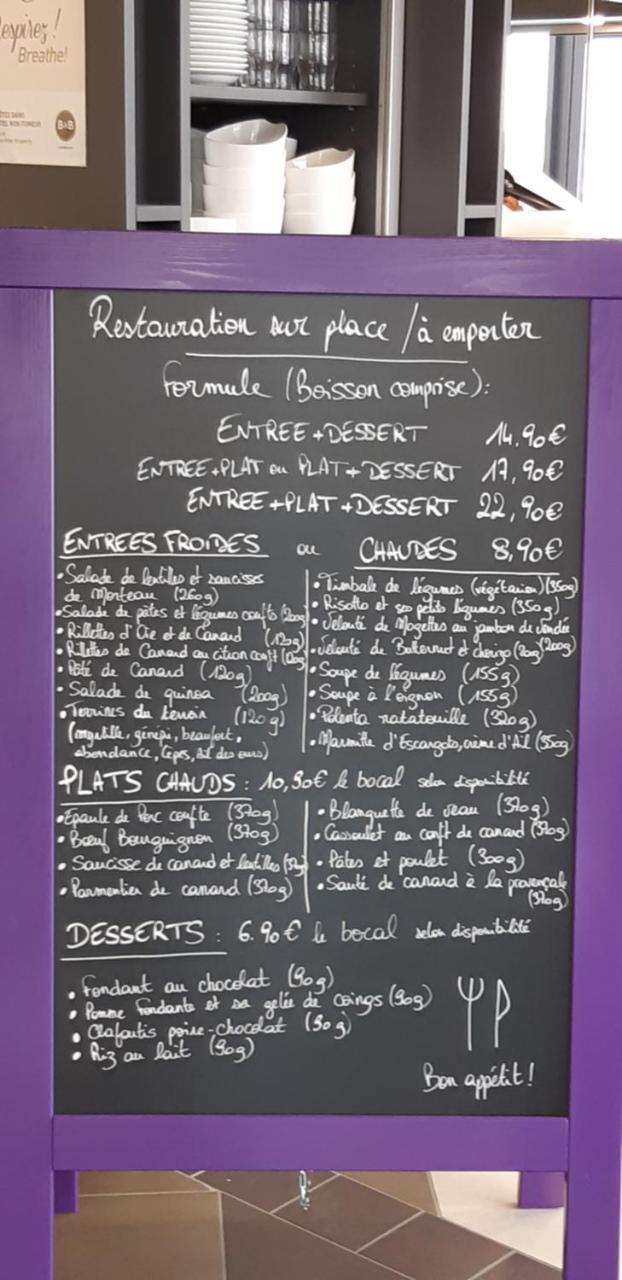 Respirez !
Breathe!
B&B
Restauration sur place / à emporter
Formule (Boisson comprise) :
ENTREE + DESSERT 14,90€
ENTREE + PLAT ou PLAT + DESSERT 17,90€
ENTREE + PLAT + DESSERT 22,90€
ENTREES FROIDES ou CHAUDES 8,90€
• Salade de lentilles et saucisses
de Morteau (260g)
• Salade de pâtes et légumes confits (200g)
• Rillettes d'Oie et de Canard (120g)
• Rillettes de Canard au citron confit (120g)
• Pâté de Canard (120g)
• Salade de quinoa (200g)
• Terrines du terroir (120g)
(myrtille, génépi, beaufort,
abondance, cèpes, Ail des ours)
• Timbale de légumes (végétarien) (350g)
• Risotto et ses petits légumes (350g)
• Velouté de Mogettes au jambon de vendée
(200g)
• Velouté de Butternut et chorizo
• Soupe de légumes (155g)
• Soupe à l'oignon (155g)
• Polenta ratatouille (320g)
• Marmite d'Escargots, crème d'Ail (350g)
PLATS CHAUDS : 10,90€ le bocal selon disponibilité
• Epaule de Porc confite (370g)
• Bœuf Bourguignon (370g)
• Saucisse de canard et lentilles
• Parmentier de canard (320g)
• Blanquette de veau (370g)
• Cassoulet au confit de canard (370g)
• Pâtes et poulet (300g)
• Sauté de canard à la provençale
(370g)
DESSERTS : 6.90€ le bocal selon disponibilité
• Fondant au chocolat (90g)
• Pomme fondante et sa gelée de coings (90g)
• Clafoutis poire-chocolat (90g)
• Riz au lait (90g)
Bon appétit !